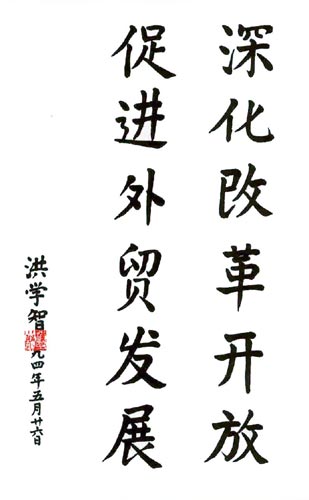 深化改革开放
促进外贸发展
洪学智
九四年五月廿六日